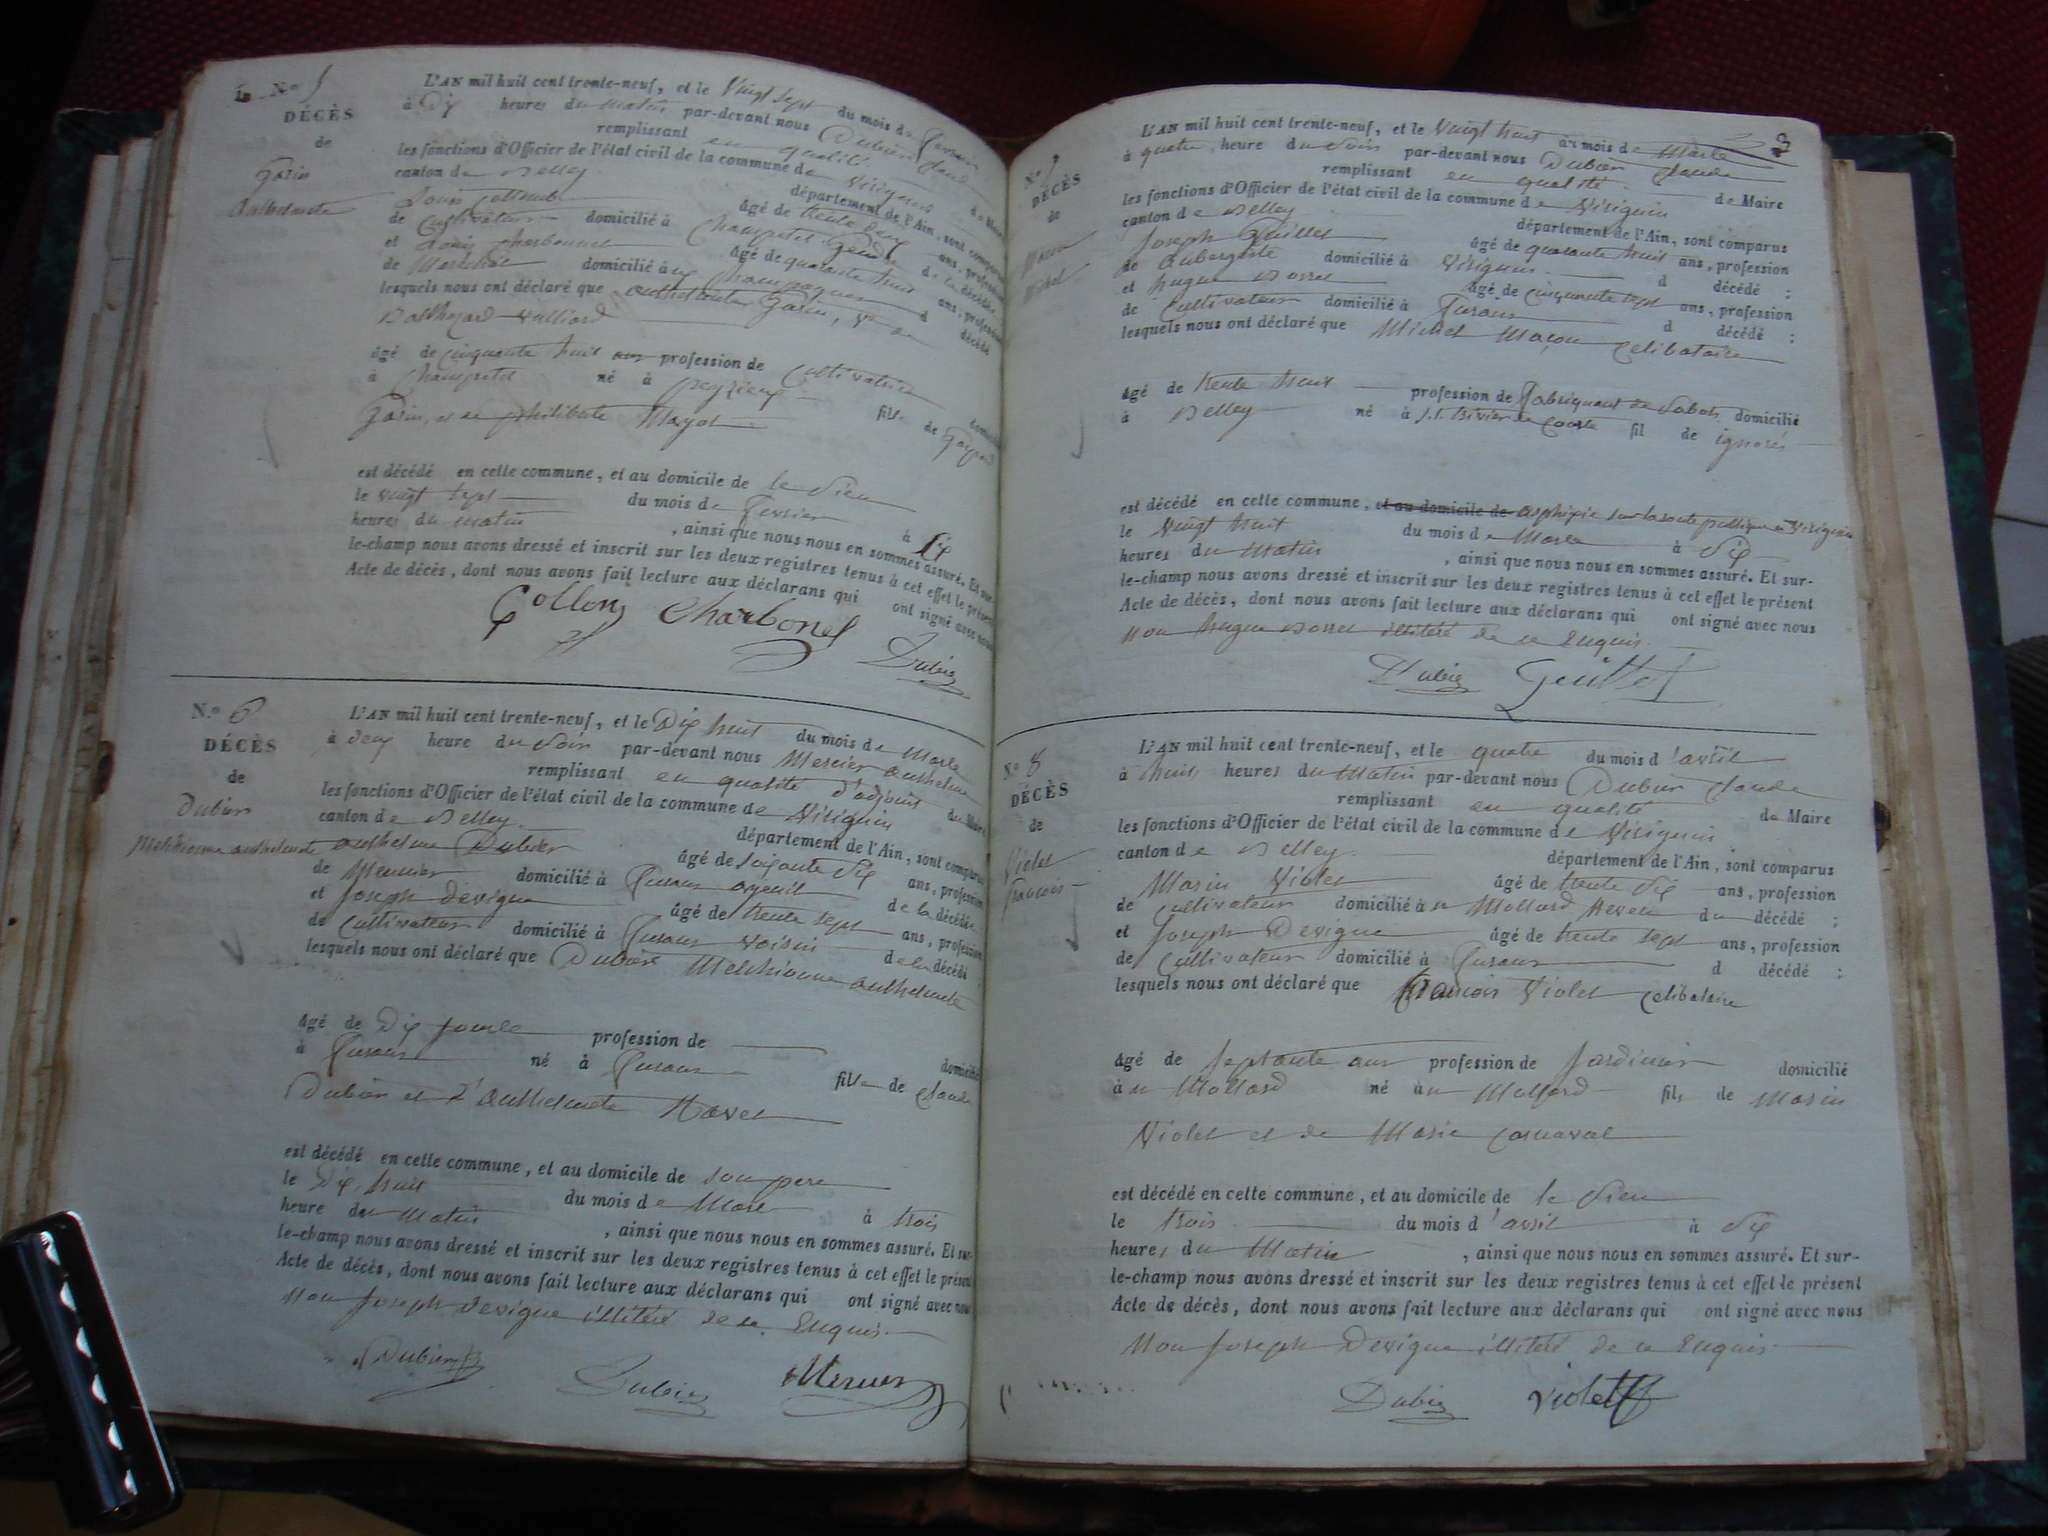 N.º 5
DÉCÈS
de
Gorin
Anthelmette
L'AN mil huit cent trente-neuf, et le Vingt Sept du mois de Fevrier
à Dix heures du Matin par-devant nous Dubier Claude
remplissant en qualité de Maire
les fonctions d'Officier de l'état civil de la commune de Virignin
canton de Belley département de l'Ain, sont comparus
Louis âgé de trente ans, profession
de Cultivateur domicilié à Champetel Gendre de la décédée
et Louis Charbonnet âgé de quarante huit ans, profession
de domicilié à d décédé
lesquels nous ont déclaré que
âgé de cinquante huit ans profession de Cultivatrice domicilié
à Champetel né à Peyzieu fille de
est décédé en cette commune, et au domicile de le Sien
le vingt sept du mois de Fevrier à Six
heures du Matin, ainsi que nous nous en sommes assuré. Et sur-
le-champ nous avons dressé et inscrit sur les deux registres tenus à cet effet le présent
Acte de décès, dont nous avons fait lecture aux déclarans qui ont signé avec nous
Charbonel
Dubier
N.º 6
DÉCÈS
de
Dubier
Melchionne anthelmette
L'AN mil huit cent trente-neuf, et le Dix huit du mois de Mars
à deux heure du Soir par-devant nous Mercier anthelme
remplissant en qualité d'adjoint du Maire
les fonctions d'Officier de l'état civil de la commune de Virignin
canton de Belley département de l'Ain, sont comparus
anthelme Dubier âgé de soixante Dix ans, profession
de Meunier domicilié à Cusaus ayeuil de la décédée
et Joseph Devigue âgé de trente sept ans, profession
de Cultivateur domicilié à Cusaus voisin de la décédé
lesquels nous ont déclaré que Dubier Melchionne anthelmette
âgé de Dix jours profession de domicilié
à Cusaus né à Cusaus fille de Claude
Dubier et d'anthelmette Ravet
est décédé en cette commune, et au domicile de son pere
le Dix huit du mois de Mars à trois
heure du Matin, ainsi que nous nous en sommes assuré. Et sur-
le-champ nous avons dressé et inscrit sur les deux registres tenus à cet effet le présent
Acte de décès, dont nous avons fait lecture aux déclarans qui ont signé avec nous
Non Joseph Devigue illitéré de ce Enquis
Dubier Dubier Mercier
3
N.º 7
DÉCÈS
de
Maçon
Michel
L'AN mil huit cent trente-neuf, et le Vingt huit du mois de Mars
à quatre heure du Soir par-devant nous Dubier Claude
remplissant en qualité de Maire
les fonctions d'Officier de l'état civil de la commune de Virignin
canton de Belley département de l'Ain, sont comparus
Joseph Guillet âgé de quarante huit ans, profession
de Aubergiste domicilié à Virignin d décédé ;
et hugue Borret âgé de cinquante sept ans, profession
de Cultivateur domicilié à Cusaus d décédé ;
lesquels nous ont déclaré que Michel Maçon Celibataire
âgé de trente huit profession de Fabriquant de Sabots domicilié
à Belley né à fil de ignorés
est décédé en cette commune, et au domicile de asphixie sur la route publique en Virignin
le Vingt huit du mois de Mars à Dix
heures du Matin, ainsi que nous nous en sommes assuré. Et sur-
le-champ nous avons dressé et inscrit sur les deux registres tenus à cet effet le présent
Acte de décès, dont nous avons fait lecture aux déclarans qui ont signé avec nous
Non hugue Borret illitéré de ce Enquis
Dubier Guillet
N.º 8
DÉCÈS
de
Violet
François
L'AN mil huit cent trente-neuf, et le quatre du mois d'avril
à huit heures du Matin par-devant nous Dubier Claude
remplissant en qualité de Maire
les fonctions d'Officier de l'état civil de la commune de Virignin
canton de Belley département de l'Ain, sont comparus
Marin Violet âgé de trente Dix ans, profession
de Cultivateur domicilié à u Mollard Neveu du décédé ;
et Joseph Devigue âgé de trente sept ans, profession
de Cultivateur domicilié à Cusaus d décédé ;
lesquels nous ont déclaré que François Violet Celibataire
âgé de Septante ans profession de Jardinier domicilié
à u Mollard né à u Mollard fils de Marin
Violet et de Marie Carnaval
est décédé en cette commune, et au domicile de le Sien
le trois du mois d'avril à Dix
heures du Matin, ainsi que nous nous en sommes assuré. Et sur-
le-champ nous avons dressé et inscrit sur les deux registres tenus à cet effet le présent
Acte de décès, dont nous avons fait lecture aux déclarans qui ont signé avec nous
Non Joseph Devigue illitéré de ce Enquis
Dubier Violett